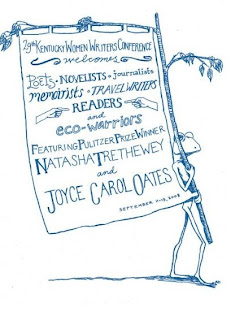 29th KENTUCKY WOMEN WRITERS CONFERENCE
welcomes
POETS • NOVELISTS • journalists
memoirists • TRAVEL WRITERS
READERS
and
eco-warriors
FEATURING PULITZER PRIZE WINNER
NATASHA TRETHEWEY
and
JOYCE CAROL OATES